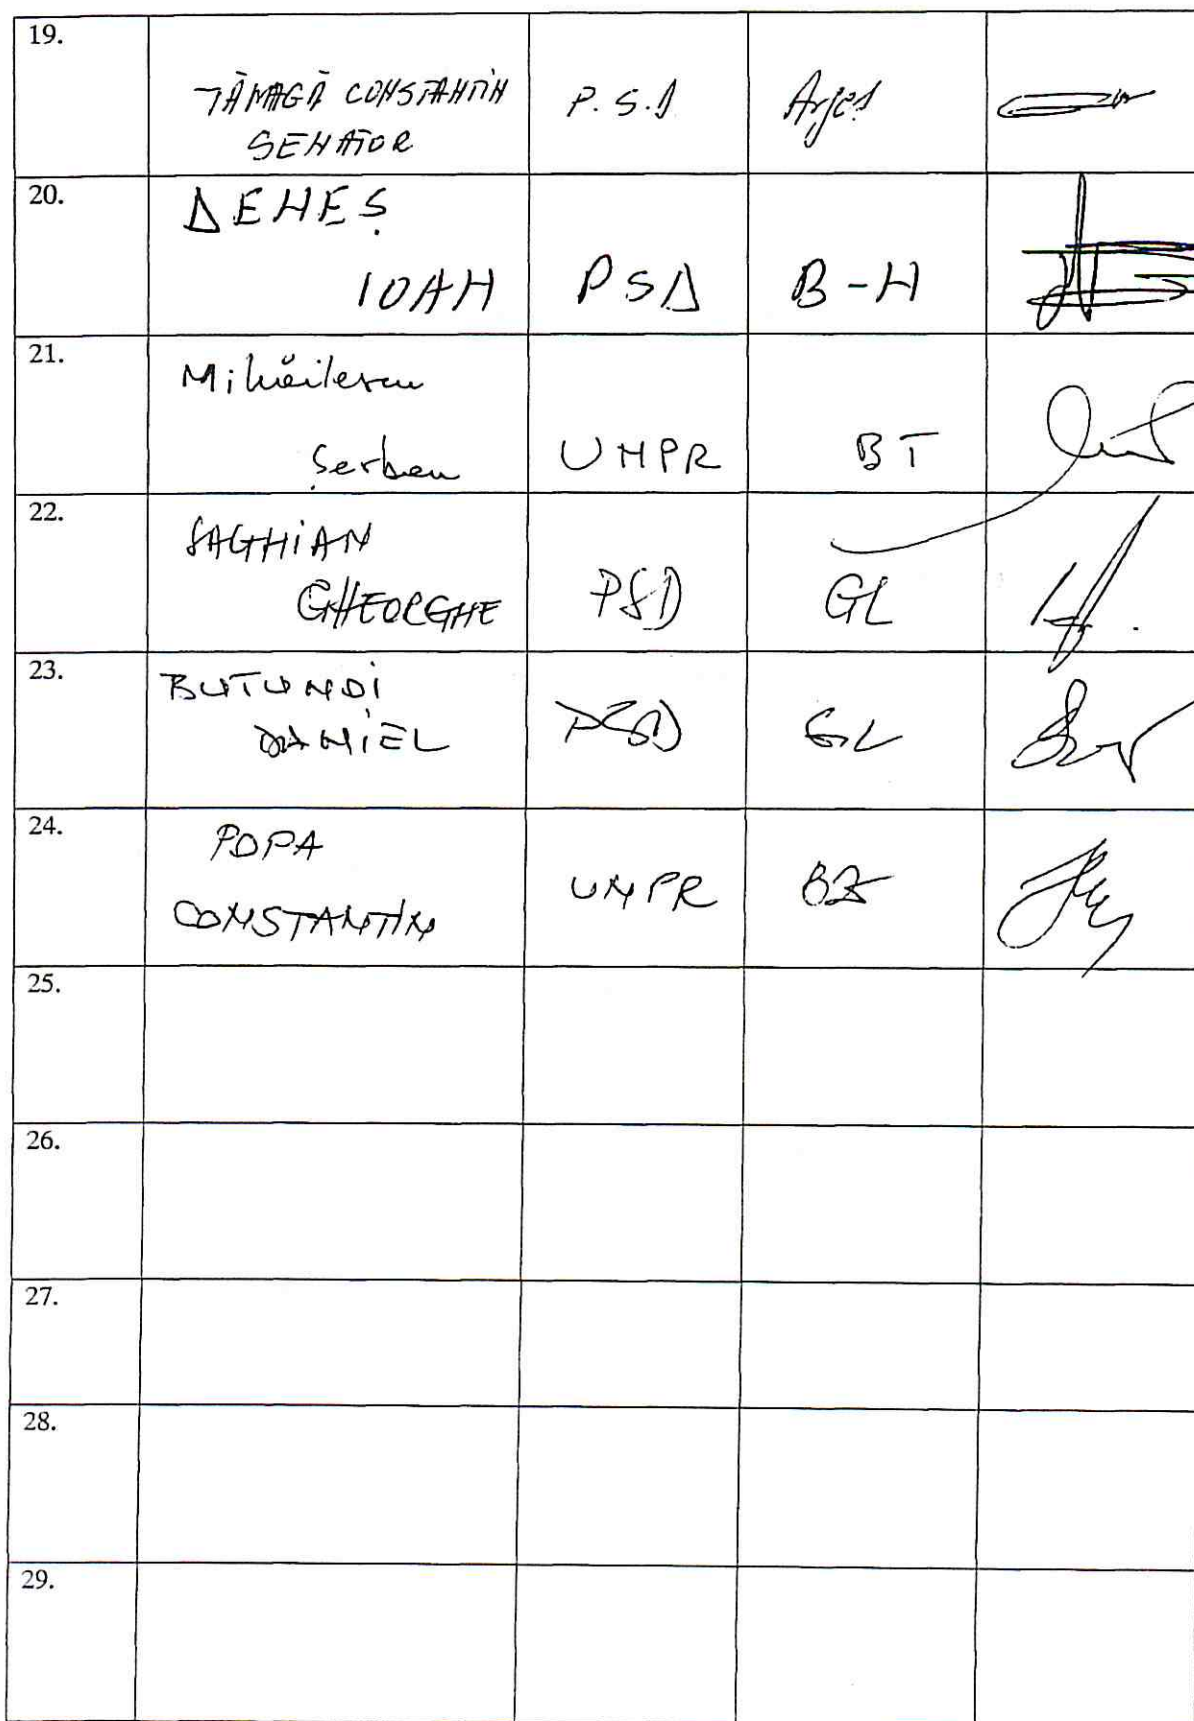 19.
TĂMAGĂ CONSTANTIN P.S.D Argeș
SENATOR
20.
DENEȘ
IOAN PSD B-N
21.
Mihăilescu
Șerban UNPR BT
22.
SAGHIAN
GHEORGHE PSD GL
23.
BUTUNOI
DANIEL PSD GL
24.
POPA
CONSTANTIN UNPR BZ
25.
26.
27.
28.
29.